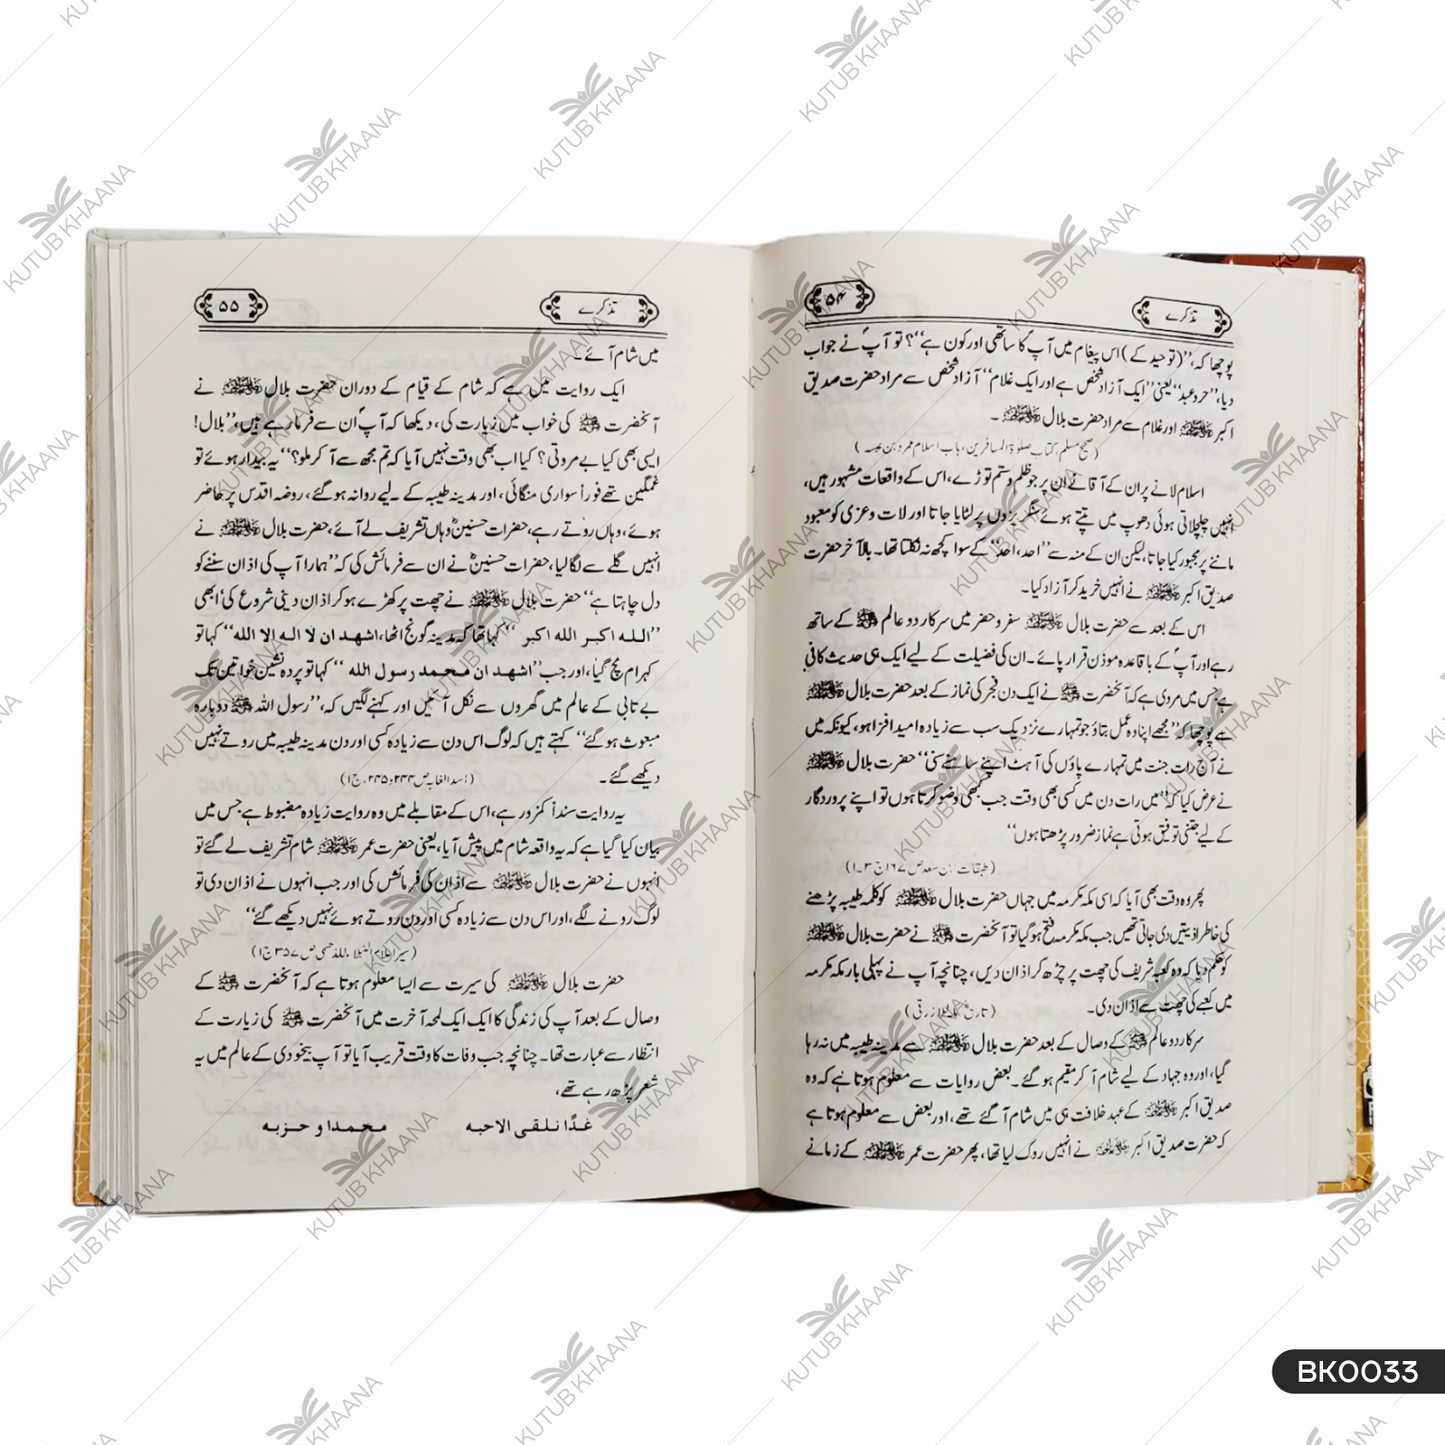 تذکرے
۵۴
پوچھا کہ، ”(توحید کے) اس پیغام میں آپؐ کا ساتھی اور کون ہے“؟ تو آپؐ نے جواب
دیا، ”حر و عبد“ یعنی ”ایک آزاد شخص ہے اور ایک غلام“ آزاد شخص سے مراد حضرت صدیق
اکبر رضی اللہ عنہ اور غلام سے مراد حضرت بلال رضی اللہ عنہ۔
(صحیح مسلم، کتاب صلوٰۃ المسافرین، باب اسلام عمرو بن عبسہ)
اسلام لانے پر ان کے آقا نے ان پر جو ظلم و ستم توڑے، اس کے واقعات مشہور ہیں،
انہیں چلچلاتی ہوئی دھوپ میں تپتے ہوئے سنگریزوں پر لٹایا جاتا اور لات و عزی کو معبود
ماننے پر مجبور کیا جاتا، لیکن ان کے منہ سے ”احد، احد“ کے سوا کچھ نہ نکلتا تھا۔ بالآخر حضرت
صدیق اکبر رضی اللہ عنہ نے انہیں خرید کر آزاد کیا۔
اس کے بعد سے حضرت بلال رضی اللہ عنہ سفر و حضر میں سرکار دو عالم ﷺ کے ساتھ
رہے اور آپؐ کے باقاعدہ موذن قرار پائے۔ ان کی فضیلت کے لیے ایک ہی حدیث کافی
ہے جس میں مروی ہے کہ آنحضرت ﷺ نے ایک دن فجر کی نماز کے بعد حضرت بلال رضی اللہ عنہ
سے پوچھا کہ ”مجھے اپنا وہ عمل بتاؤ جو تمہارے نزدیک سب سے زیادہ امید افزا ہو، کیونکہ میں
نے آج رات جنت میں تمہارے پاؤں کی آہٹ اپنے سامنے سنی“ حضرت بلال رضی اللہ عنہ
نے عرض کیا کہ ”میں رات دن میں کسی بھی وقت جب بھی وضو کرتا ہوں تو اپنے پروردگار
کے لیے جتنی توفیق ہوتی ہے نماز ضرور پڑھتا ہوں“
(طبقات ابن سعد ص ۱۶۷ ج ۳-۱)
پھر وہ وقت بھی آیا کہ اسی مکہ مکرمہ میں جہاں حضرت بلال رضی اللہ عنہ کو کلمہ طیبہ پڑھنے
کی خاطر اذیتیں دی جاتی تھیں جب مکہ مکرمہ فتح ہو گیا تو آنحضرت ﷺ نے حضرت بلال رضی اللہ عنہ
کو حکم دیا کہ وہ کعبہ شریف کی چھت پر چڑھ کر اذان دیں، چنانچہ آپ نے پہلی بار مکہ مکرمہ
میں کعبے کی چھت سے اذان دی۔ (تاریخ مکہ للازرقی)
سرکار دو عالم ﷺ کے وصال کے بعد حضرت بلال رضی اللہ عنہ سے مدینہ طیبہ میں نہ رہا
گیا، اور وہ جہاد کے لیے شام آ کر مقیم ہو گئے۔ بعض روایات سے معلوم ہوتا ہے کہ وہ
صدیق اکبر رضی اللہ عنہ کے عہد خلافت ہی میں شام آ گئے تھے، اور بعض سے معلوم ہوتا ہے
کہ حضرت صدیق اکبر رضی اللہ عنہ نے انہیں روک لیا تھا، پھر حضرت عمر رضی اللہ عنہ کے زمانے
تذکرے
۵۵
میں شام آئے۔
ایک روایت میں ہے کہ شام کے قیام کے دوران حضرت بلال رضی اللہ عنہ نے
آنحضرت ﷺ کی خواب میں زیارت کی، دیکھا کہ آپؐ ان سے فرما رہے ہیں، ”بلال!
ایسی بھی کیا بے مروتی؟ کیا اب بھی وقت نہیں آیا کہ تم مجھ سے آ کر ملو؟“ یہ بیدار ہوئے تو
غمگین تھے فوراً سواری منگائی، اور مدینہ طیبہ کے لیے روانہ ہو گئے، روضہ اقدس پر حاضر
ہوئے، وہاں روتے رہے، حضرات حسنینؓ وہاں تشریف لے آئے، حضرت بلال رضی اللہ عنہ نے
انہیں گلے سے لگا لیا، حضرات حسنینؓ نے ان سے فرمائش کی کہ ”ہمارا آپ کی اذان سننے کو
دل چاہتا ہے“ حضرت بلال رضی اللہ عنہ نے چھت پر کھڑے ہو کر اذان دینی شروع کی ابھی
”اللہ اکبر اللہ اکبر“ کہا تھا کہ مدینہ گونج اٹھا، اشهد ان لا اله الا الله“ کہا تو
کہرام مچ گیا، اور جب ”اشهد ان محمد رسول الله“ کہا تو پردہ نشین خواتین تک
بے تابی کے عالم میں گھروں سے نکل آئیں اور کہنے لگیں کہ، ”رسول اللہ ﷺ دوبارہ
مبعوث ہو گئے“ کہتے ہیں کہ لوگ اس دن سے زیادہ کسی اور دن مدینہ طیبہ میں روتے نہیں
دیکھے گئے۔ (اسد الغابہ ص ۲۴۴ و ۲۴۵، ج ۱)
یہ روایت سنداً کمزور ہے، اس کے مقابلے میں وہ روایت زیادہ مضبوط ہے جس میں
بیان کیا گیا ہے کہ یہ واقعہ شام میں پیش آیا، یعنی حضرت عمر رضی اللہ عنہ شام تشریف لے گئے تو
انہوں نے حضرت بلال رضی اللہ عنہ سے اذان کی فرمائش کی اور جب انہوں نے اذان دی تو
لوگ رونے لگے، اور اس دن سے زیادہ کسی اور دن روتے ہوئے نہیں دیکھے گئے“
(سیر اعلام النبلاء للذھبی ص ۳۵۷ ج ۱)
حضرت بلال رضی اللہ عنہ کی سیرت سے ایسا معلوم ہوتا ہے کہ آنحضرت ﷺ کے
وصال کے بعد آپ کی زندگی کا ایک ایک لمحہ آخرت میں آنحضرت ﷺ کی زیارت کے
انتظار سے عبارت تھا۔ چنانچہ جب وفات کا وقت قریب آیا تو آپ بیخودی کے عالم میں یہ
شعر پڑھ رہے تھے،
غدًا نلقی الاحبه محمدا و حزبه
BK0033
KUTUB KHAANA